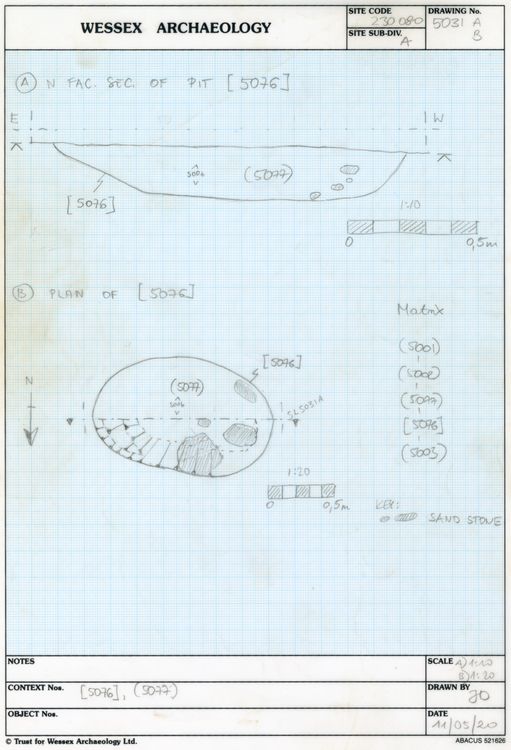 WESSEX ARCHAEOLOGY
SITE CODE
230080
SITE SUB-DIV.
A
DRAWING No.
5031 A
B
A N FAC. SEC. OF PIT [5076]
E
W
5006
(5077)
[5076]
1:10
0
0,5m
B PLAN OF [5076]
Matrix
(5001)
(5002)
(5077)
[5076]
(5003)
[5076]
(5077)
5006
SL5031A
N
1:20
0
0,5m
KEY:
SAND STONE
NOTES
CONTEXT Nos.
[5076], (5077)
OBJECT Nos.
SCALE A) 1:10
B) 1:20
DRAWN BY
JO
DATE
11/05/20
© Trust for Wessex Archaeology Ltd.
ABACUS 521626